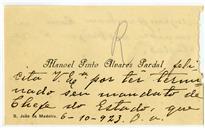 R
Manoel Pinto Alvares Pardal, feli
cita V. Exª por ter termi
nado seu mandato de
Chefe do Estado, que
S. João da Madeira. 6-10-923. D. a.